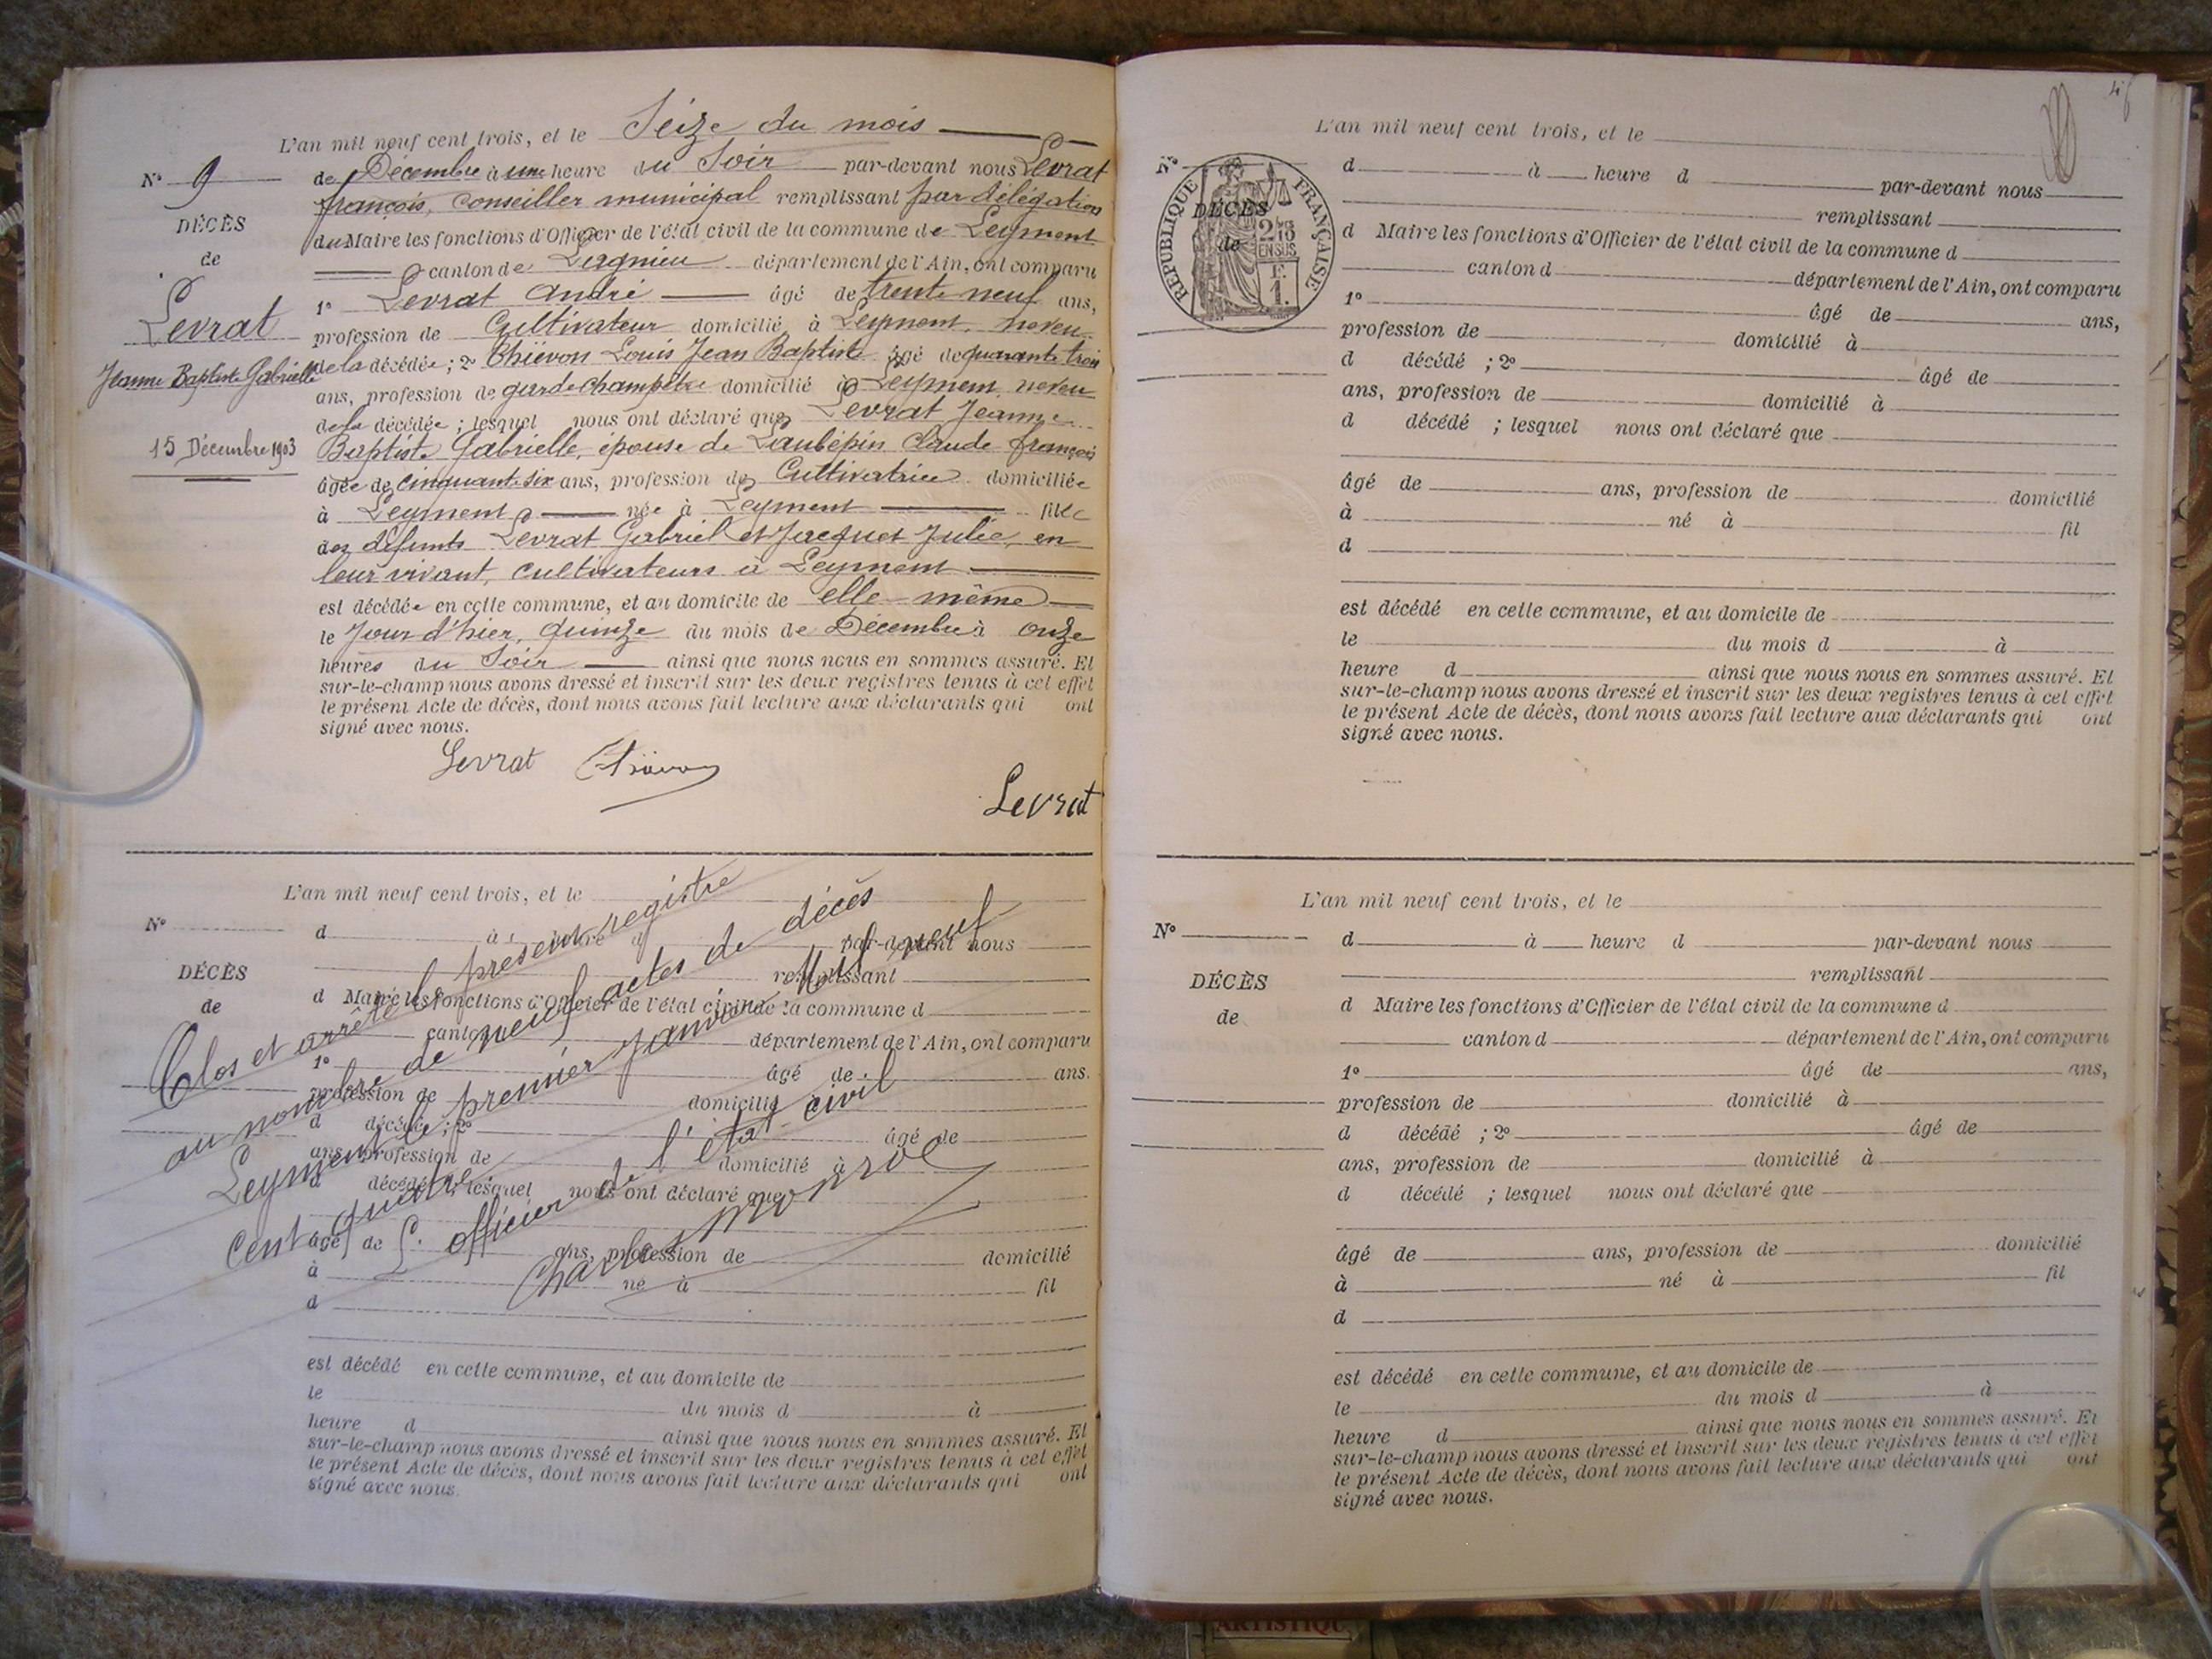 L'an mil neuf cent trois, et le Seize du mois
N° 9
de Décembre à une heure du Soir par-devant nous Levrat
françois, conseiller municipal remplissant par délégation
DÉCÈS
du Maire les fonctions d'Officier de l'état civil de la commune de Leyment
de
canton de Lagnieu département de l'Ain, ont comparu
Levrat
1° Levrat André âgé de trente neuf ans,
profession de Cultivateur domicilié à Leyment, neveu
Jeanne Baptiste Gabrielle
de la décédée ; 2° Louis Jean Baptiste âgé de quarante trois
ans, profession de garde champêtre domicilié à Leyment, neveu
de la décédée ; lesquel nous ont déclaré que Levrat Jeanne
15 Décembre 1903
Baptiste Gabrielle, épouse de Laubépin Claude françois
âgée de cinquante six ans, profession de Cultivatrice domiciliée
à Leyment née à Leyment fille
des défunts Levrat Gabriel et Jacquet Julie, en
leur vivant, cultivateurs à Leyment
est décédée en cette commune, et au domicile de elle-même
le Jour d'hier, quinze du mois de Décembre à onze
heures du Soir ainsi que nous nous en sommes assuré. Et
sur-le-champ nous avons dressé et inscrit sur les deux registres tenus à cet effet
le présent Acte de décès, dont nous avons fait lecture aux déclarants qui ont
signé avec nous.
Levrat
Levrat
L'an mil neuf cent trois, et le
N°
d à heure d par-devant nous
remplissant
DÉCÈS
d Maire les fonctions d'Officier de l'état civil de la commune d
de
canton d département de l'Ain, ont comparu
1° âgé de ans.
profession de domicilié à
d décédé ; 2° âgé de
ans, profession de domicilié à
d décédé ; lesquel nous ont déclaré que
âgé de ans, profession de domicilié
à né à fil
d
est décédé en cette commune, et au domicile de
le du mois d à
heure d ainsi que nous nous en sommes assuré. Et
sur-le-champ nous avons dressé et inscrit sur les deux registres tenus à cet effet
le présent Acte de décès, dont nous avons fait lecture aux déclarants qui ont
signé avec nous.
Clos et arrêté le présent registre
au nombre de neuf actes de décès
Leyment le premier Janvier Mil neuf
cent quatre.
L'officier de l'état civil
L'an mil neuf cent trois, et le
N°
d à heure d par-devant nous
remplissant
RÉPUBLIQUE FRANÇAISE
2/10 EN SUS
F.
1.
DÉCÈS
de
d Maire les fonctions d'Officier de l'état civil de la commune d
canton d département de l'Ain, ont comparu
1° âgé de ans,
profession de domicilié à
d décédé ; 2° âgé de
ans, profession de domicilié à
d décédé ; lesquel nous ont déclaré que
âgé de ans, profession de domicilié
à né à fil
d
est décédé en cette commune, et au domicile de
le du mois d à
heure d ainsi que nous nous en sommes assuré. Et
sur-le-champ nous avons dressé et inscrit sur les deux registres tenus à cet effet
le présent Acte de décès, dont nous avons fait lecture aux déclarants qui ont
signé avec nous.
L'an mil neuf cent trois, et le
N°
d à heure d par-devant nous
remplissant
DÉCÈS
d Maire les fonctions d'Officier de l'état civil de la commune d
de
canton d département de l'Ain, ont comparu
1° âgé de ans,
profession de domicilié à
d décédé ; 2° âgé de
ans, profession de domicilié à
d décédé ; lesquel nous ont déclaré que
âgé de ans, profession de domicilié
à né à fil
d
est décédé en cette commune, et au domicile de
le du mois d à
heure d ainsi que nous nous en sommes assuré. Et
sur-le-champ nous avons dressé et inscrit sur les deux registres tenus à cet effet
le présent Acte de décès, dont nous avons fait lecture aux déclarants qui ont
signé avec nous.